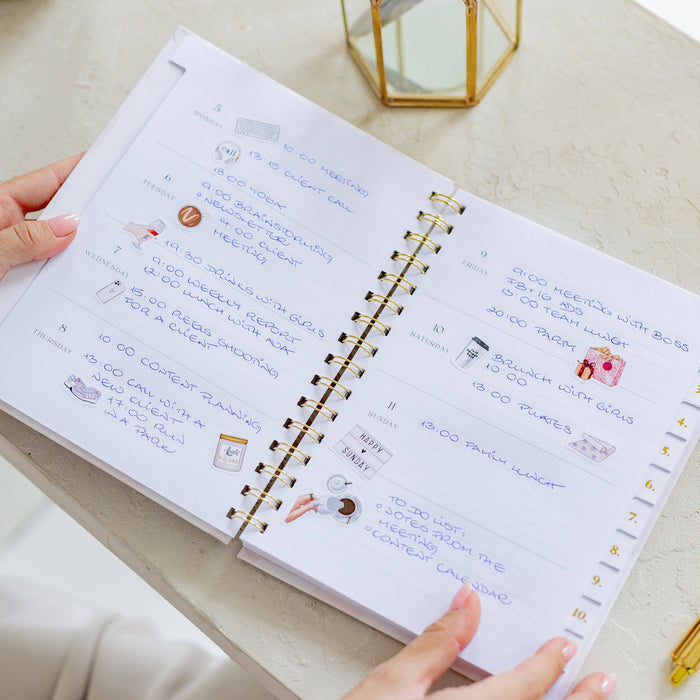 5
MONDAY
10:00 MEETING
call
13:15 CLIENT CALL
18:00 YOGA
6
TUESDAY
9:00 BRAINSTORMING
• NEWSLETTER
14:00 CLIENT
MEETING
7
WEDNESDAY
19:30 DRINKS WITH GIRLS
9:00 WEEKLY REPORT
12:00 LUNCH WITH ADA
15:00 REELS SHOOTING
FOR A CLIENT
8
THURSDAY
10:00 CONTENT PLANNING
13:00 CALL WITH A
NEW CLIENT
17:00 RUN
IN A PARK
9
FRIDAY
9:00 MEETING WITH BOSS
FB + IG ADS
13:00 TEAM LUNCH
20:00 PARTY
10
SATURDAY
BRUNCH WITH GIRLS
10:00
13:00 PILATES
11
SUNDAY
13:00 FAMILY LUNCH
HAPPY
SUNDAY
TO DO LIST:
• NOTES FROM THE
MEETING
• CONTENT CALENDAR
4.
5.
6.
7.
8.
9.
10.